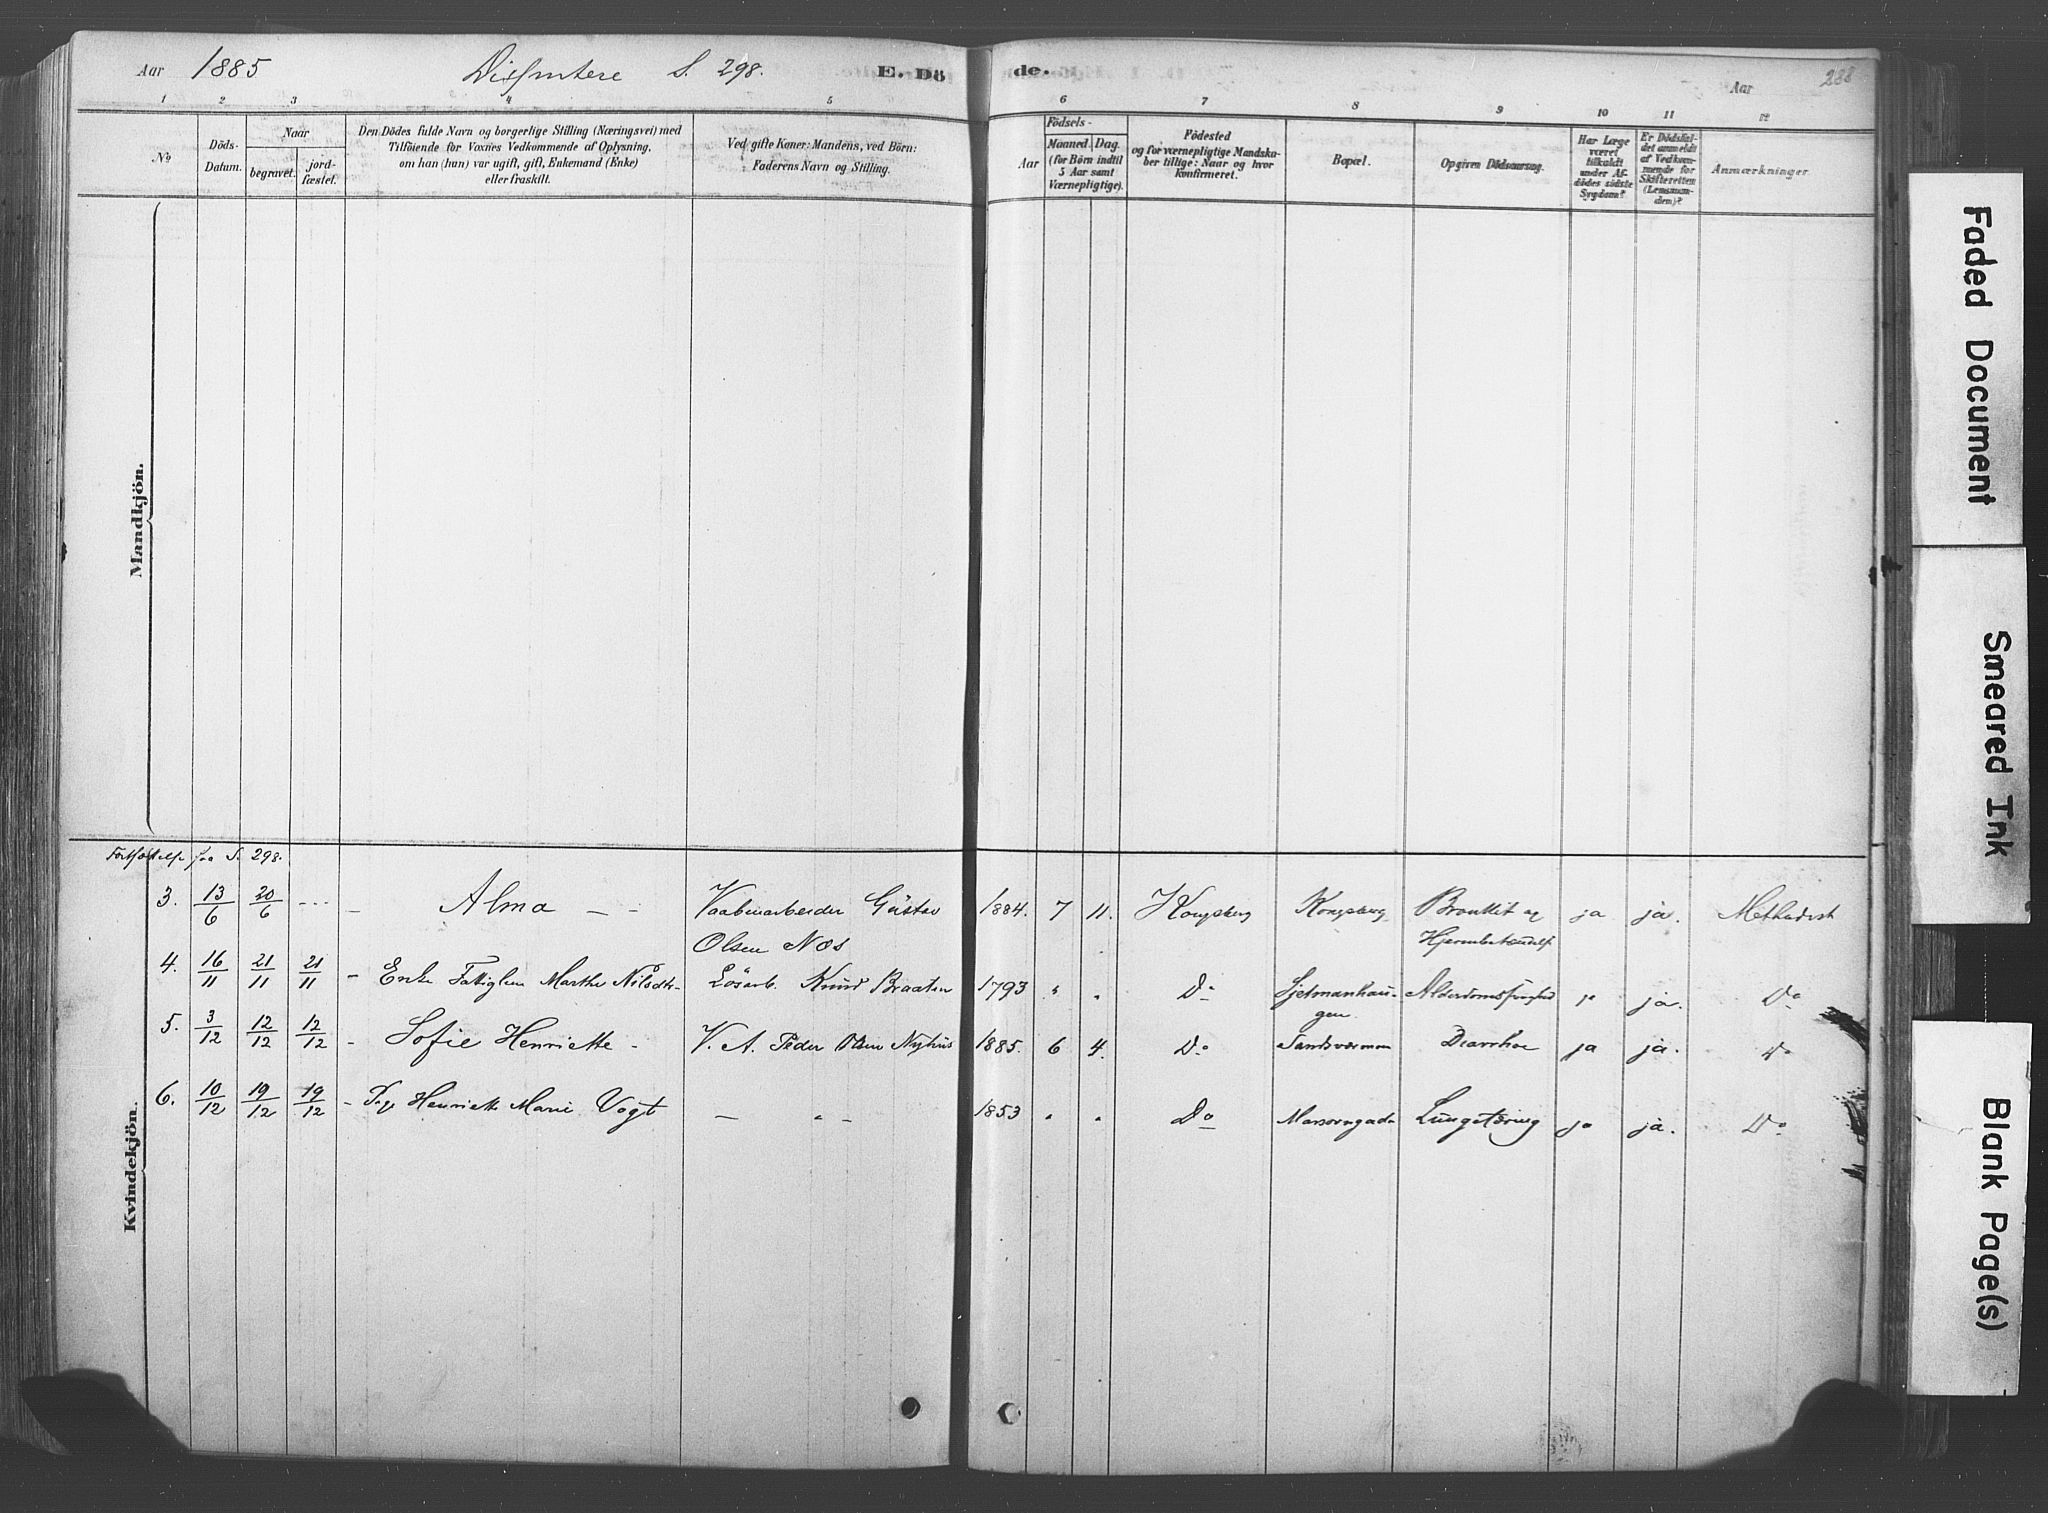 Aar 1885 Dissentere S. 298. E. Dö de. Aar 288
1 2 3 4 5 6 7 8 9 10 11 12
No
Döds-Datum.
Naar
begravet. jord-fæstet.
Den Dödes fulde Navn og borgerlige Stilling (Næringsvei) med
Tilföiende for Voxnes Vedkommende af Oplysning,
om han (hun) var ugift, gift, Enkemand (Enke)
eller fraskilt.
Ved gifte Koner: Mandens, ved Börn:
Faderens Navn og Stilling.
Födsels-
Aar Maaned. Dag.
(for Börn indtil
5 Aar samt
Værnepligtige).
Födested
og for værnepligtige Mandska-
ber tillige: Naar og hvor
konfirmeret.
Bopæl.
Opgiven Dödsaarsag.
Har Læge
været
tilkaldt
under Af-
dödes sidste
Sygdom?
Er Dödsfal-
det anmeldt
af Vedkom-
mende for
Skifteretten
(Lensman-
den)?
Anmærkninger
Mandkjön.
Kvindekjön.
Fortsættelse fra S. 298.
3. 13/6 20/6 ... – Alma – – Vaabenarbeider Gustav 1884. 7 11. Kongsberg Kongsberg Bronkit og ja ja. Methodist
Olsen Næs Hjernebetændelse
4. 16/11 21/11 21/11 – Enke Fattiglem Marthe Nilsdtr. Lösarb. Knud Braaten 1793 " " Do Alderdomssvaghed ja ja. Do
5. 3/12 12/12 12/12 – Sofie Henriette – V. A. Peder Olsen Nyhus 1885. 6 4. Do Diarrhoe ja ja. Do
6. 10/12 19/12 19/12 – Pige Henriette Marie Vogt – " – 1853 " " Do Lungetæring ja ja. Do
Faded Document
Smeared Ink
Blank Page(s)